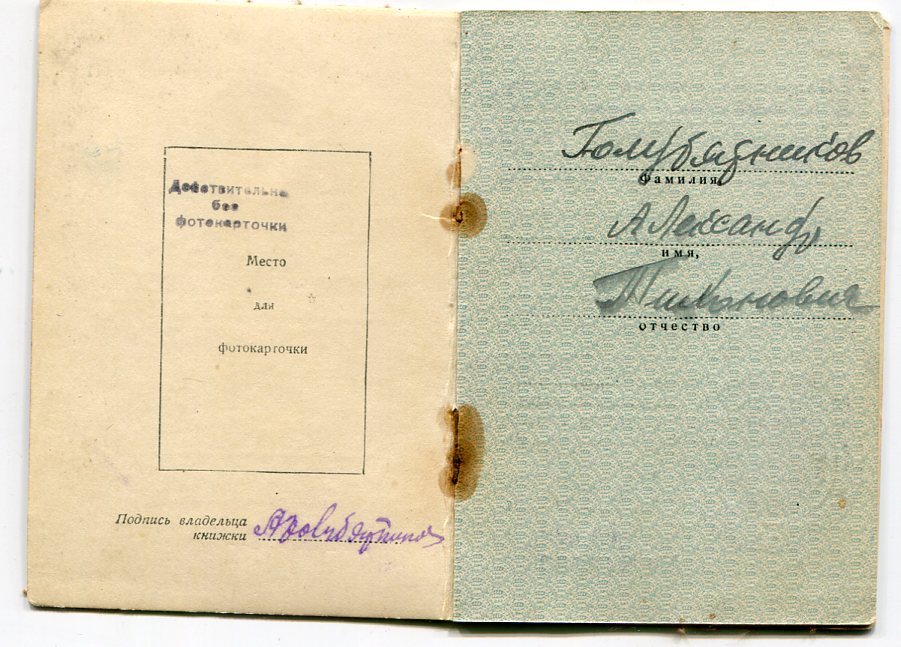 Действительна
без
фотокарточки
Место
для
фотокарточки
Подпись владельца
книжки
Голубятников
Фамилия,
Александр
имя,
Тихонович
отчество